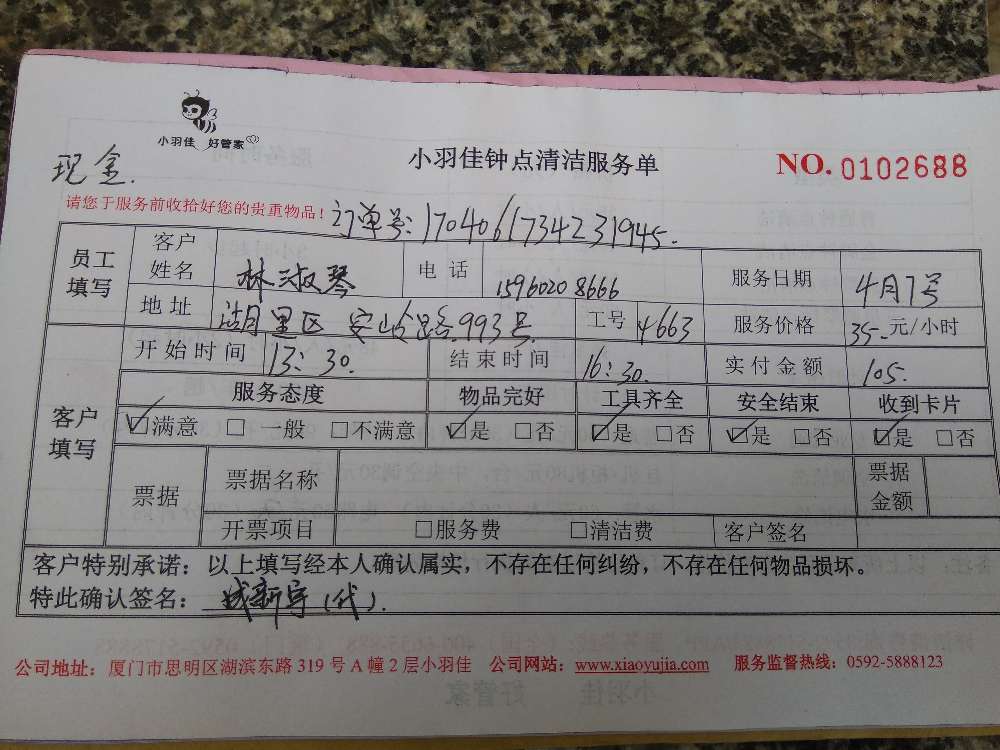 小羽佳 好管家
现金
小羽佳钟点清洁服务单
NO. 0102688
请您于服务前收拾好您的贵重物品！
订单号: 1704061734231945.
员工填写 客户姓名 林淑琴 电话 15960208666 服务日期 4月7号
地址 湖里区 安岭路993号 工号 4663 服务价格 35 元/小时
开始时间 13:30. 结束时间 16:30. 实付金额 105.
客户填写 服务态度 物品完好 工具齐全 安全结束 收到卡片
☑满意 □一般 □不满意 ☑是 □否 ☑是 □否 ☑是 □否 ☑是 □否
票据 票据名称 票据金额
开票项目 □服务费 □清洁费 客户签名
客户特别承诺：以上填写经本人确认属实，不存在任何纠纷，不存在任何物品损坏。
特此确认签名： 新宇(代).
公司地址：厦门市思明区湖滨东路319号A幢2层小羽佳 公司网站：www.xiaoyujia.com 服务监督热线：0592-5888123